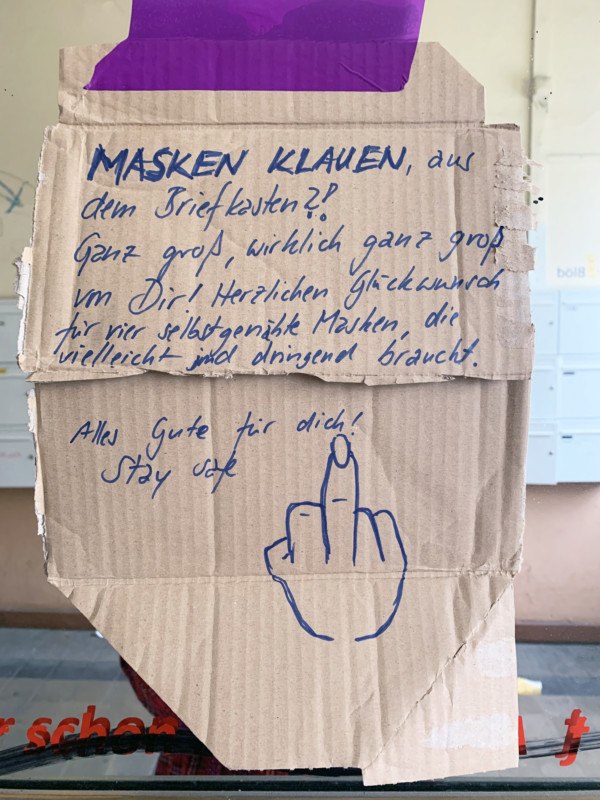 MASKEN KLAUEN, aus
dem Briefkasten?!
Ganz groß, wirklich ganz groß
von Dir! Herzlichen Glückwunsch
für vier selbstgenähte Masken, die
vielleicht jmd dringend braucht.
Alles Gute für dich!
Stay safe
r schon